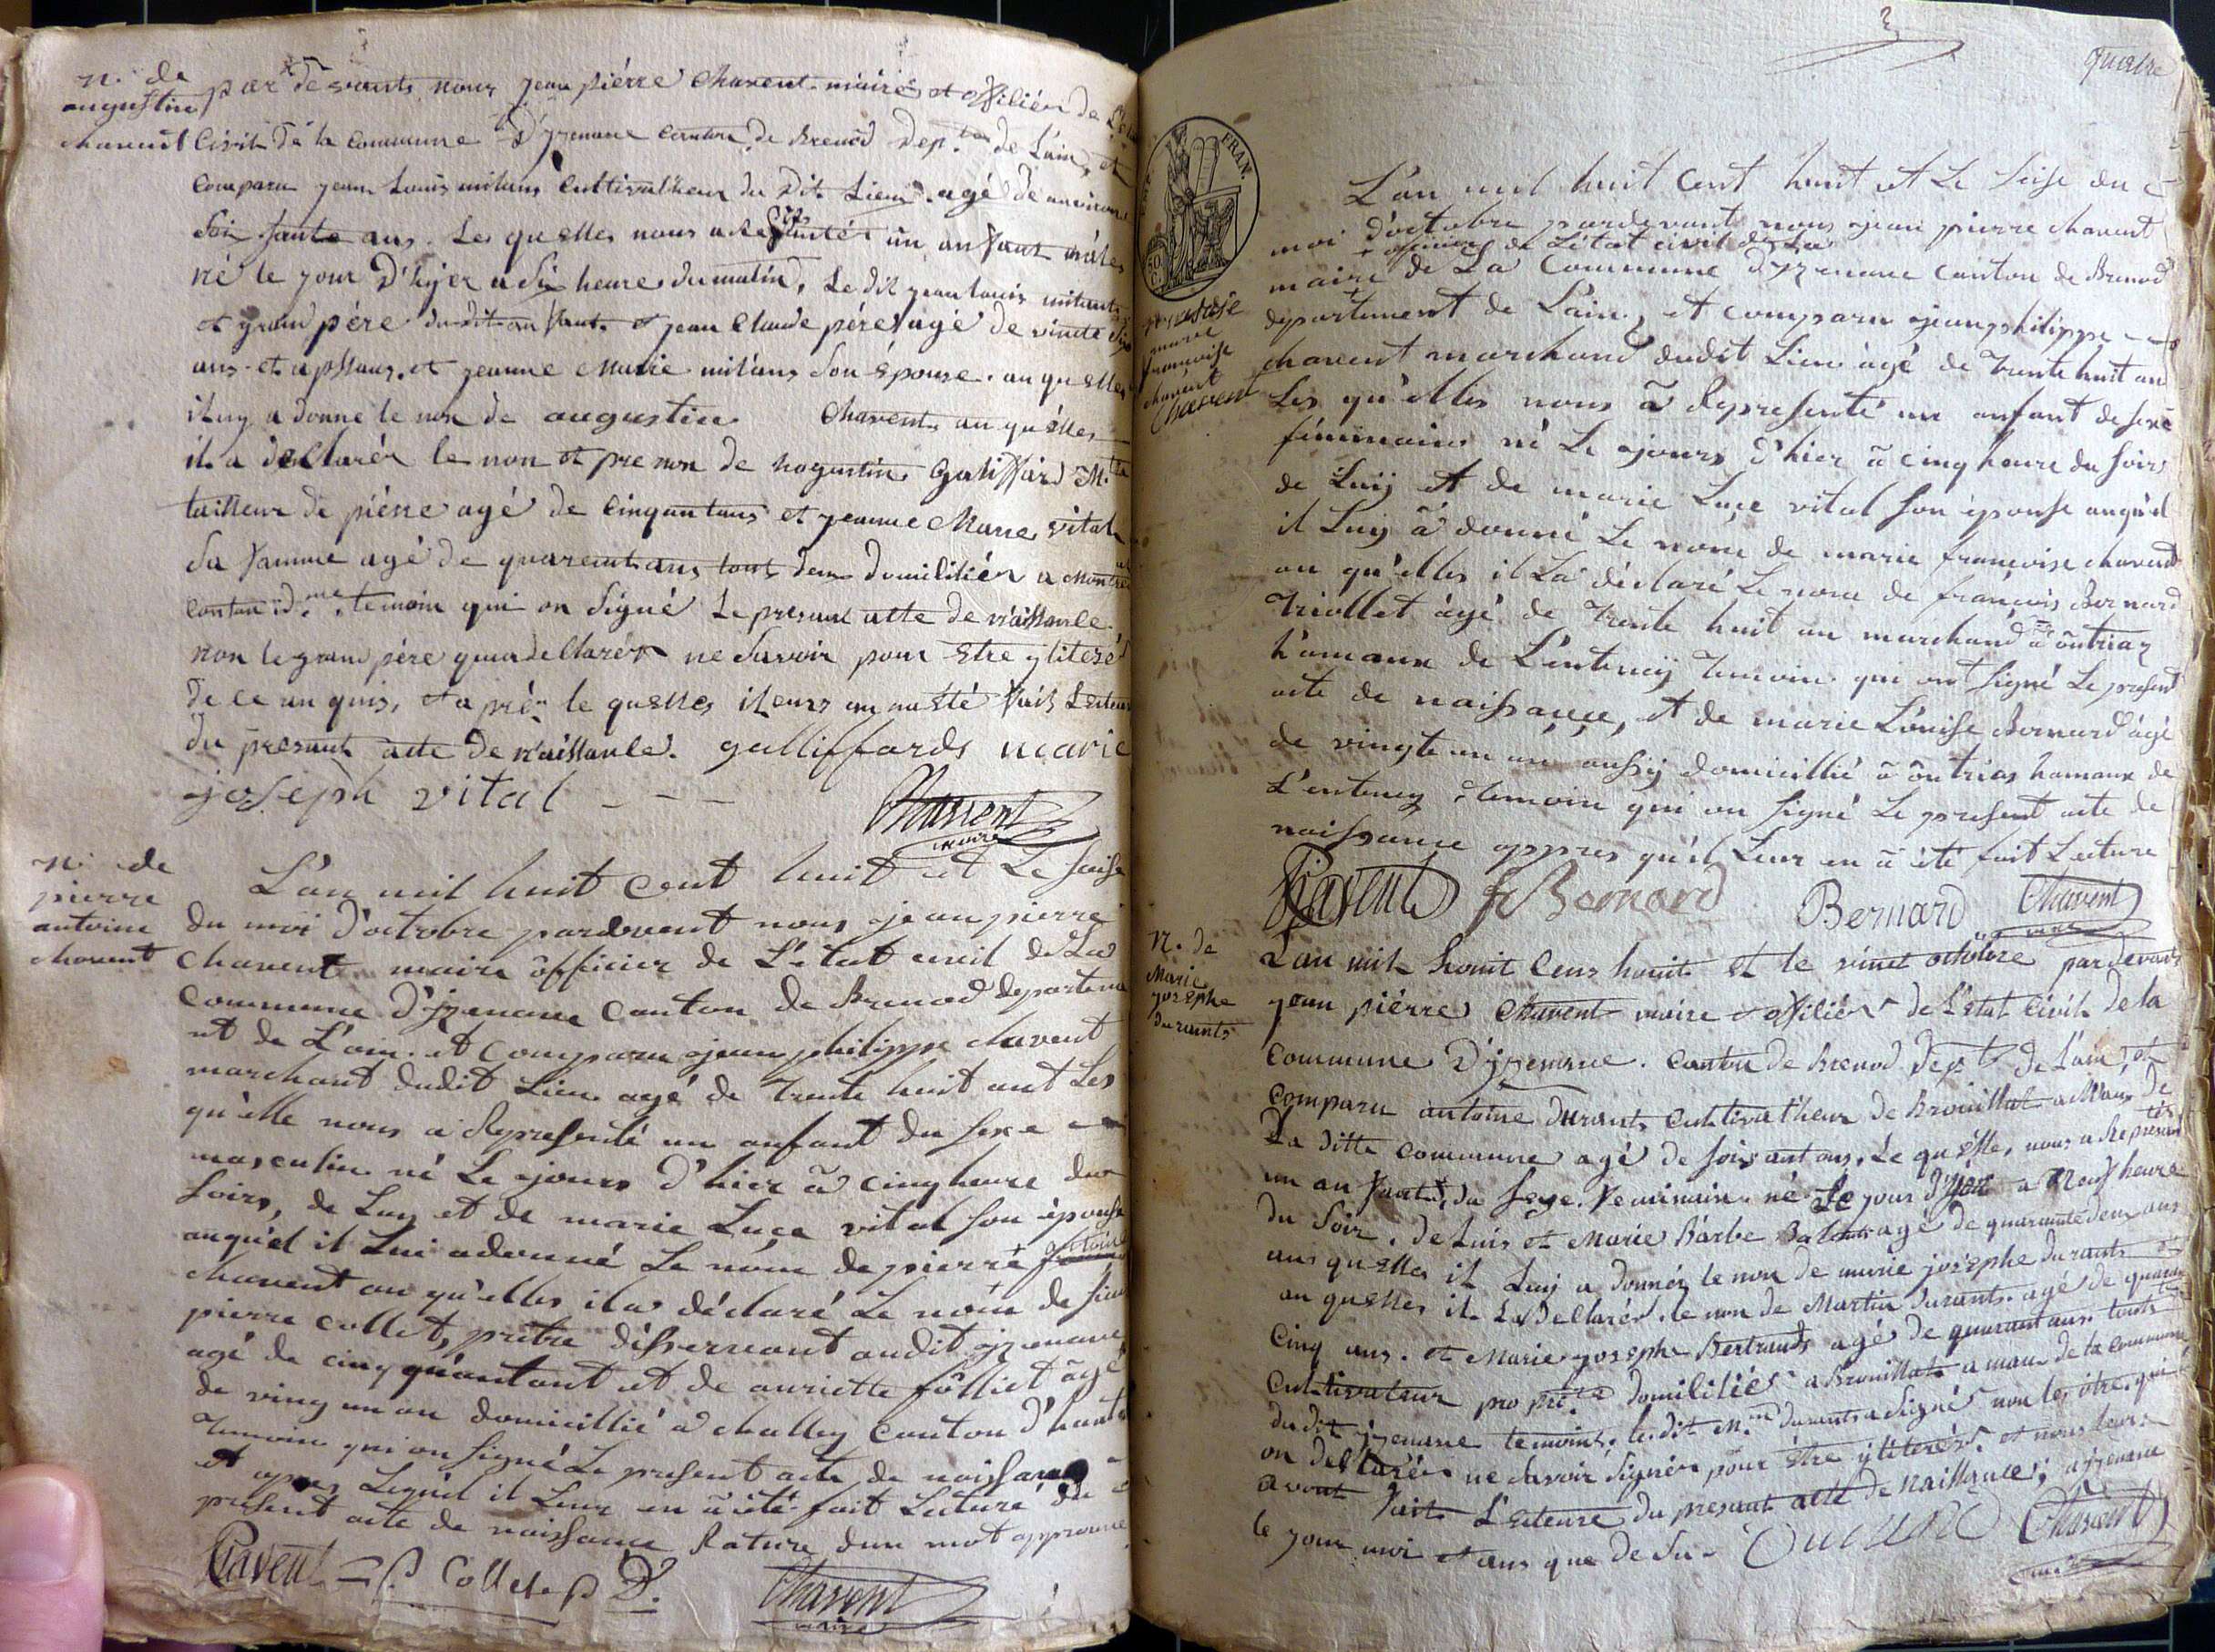 n. de
augustin
chavent
par devants nous jean piérre Chavent mairé et offiliér de
Civil dé la commune d'jzenave canton de Brenod Dep.t de Lain, et
comparu jean Louis milans Cultivatheur du Dit Lieu agé de anviron
Soi sante ans. Les quelles nous a un anfant mâles
né le jour D'hyer a Six heure du matin, Le dit jean louis milants
et grand pére du dit anfant et jean Claude pére agé de vincte Six
ans et jeanne Marie milans son épouse. au quelles
il luy a donne le non de augustin Chavent au quélles
il a déClarér le non et prenon de hogustin Galiffard M.
tailleur de piérre agé de Cinquantans et jeanne Marie vital
Sa famme agé de quarentans tout deux domiliér a
Canton id.me temoin qui on Signé Le presant atte de naissance
non le grand pére qui a déClarér ne Savoir pour Etre yliteré
De ce en quis, et aprér le quelles il leurs an na été fait Lecteur
Du presant atte de naissanle. galliffards marie
joseph vital
Chavent
maire
n. de
pierre
antoine
chavent
L'an mil huit Cent huit et Le Saise
du moi d'octobre pardevent nous jean pierre
Chavent maire officier de L'état civil de La
Commune d'jzenave Canton de Brenod departeme
nt de L'ain. et Comparu jean philippe chavent
marchant dudit Lieu agé de trente huit ant Les
qu'elle nous a Representé un anfant du sexe
masculin né Le jours d'hier à cinq heure du
soirs, de Luy et de marie Luce vital son épouse
auquel il Lui adonné Le nom de pierre antoine
chavent au qu'elles il a déclaré Le nom de
pierre collet, prétre désservant audit jzenave
agé de cinq quantant et de auriette folliet âgé
de ving un an domicillié a challey Canton d'haute
temoin qui on signé Le present acte de naissance
et apres Lequel il Leur en à été fait Lecture du
present acte de naissance Rature d'un mot approuvé
Chavent P. Collet p D.
Chavent
maire
3
quatre
FRAN.
marie
francoise
chavent
Chavent
L'an mil huit Cent huit et Le Seise du
moi d'octobre pardevant nous jean pierre chavent
+ officier de L'état civil de La
maire de La Commune d'jzenave Canton de Brenod
departement de L'ain, et comparu jean philippe
chavent marchand dudit Lieu âgé de trente huit an
Les qu'elles nous à Representé un anfant de sexe
féminains né Le jours d'hier à cinq heure du soirs
de Luij et de marie Luce vital son épouse auquel
il Luij à donné Le nom de marie francoise chavent
au qu'elles il La déclaré Le nom de françois Bernard
triollet âgé de trente huit an marchand à outriaz
hamaux de L'entenaij temoin qui ont signé Le present
acte de naissance, et de marie Louise Bernard âgé
de vingte un an aussij domicillié à outrias hamaux de
L'entenaij temoin qui on signé Le present acte de
naissance appres qu'il Leur en à été fait Lecture
Chavent fr Bernard Bernard Chavent
maire
n. de
Marie
josephe
durants
L'an mil huit Cens huit et le vinct octobre pardevants
jean piérre Chavent maire offiliér de L'état Civil de la
Commune D'jzenave. Canton de Brenod Dep.t de Lain, et
Comparu antoine Durants Cultivatheur de Brouillat amaux De
La ditte Commune agé de soisantans. Le quélle, nous a Representér
un anfant, du sexe. féminain. né Le jour d'yér a Neuf heure
du Soir. de Luis et Marie Barbe agé de quarante deux ans
aus quelles il Luy a donnér le non de marie joséphe durants
au quelles il La déClarér. le non de Martin Durants. agé de quarante
Cinq ans. et Marie joseph Bertrands agé de quarantans. touts
Cultivateur propri.re domilité a Brouillats amaux de la commune
du dit jzenave temoins. le dit M.in durants a Signér non les otre qui
on déClarér ne savoir Signér pour étre yliterér. et nous leurs
avont fait Lecteure du presant atte de naissance, a jzenave
le jour moi et ans que de Su. Durand Chavent
maire